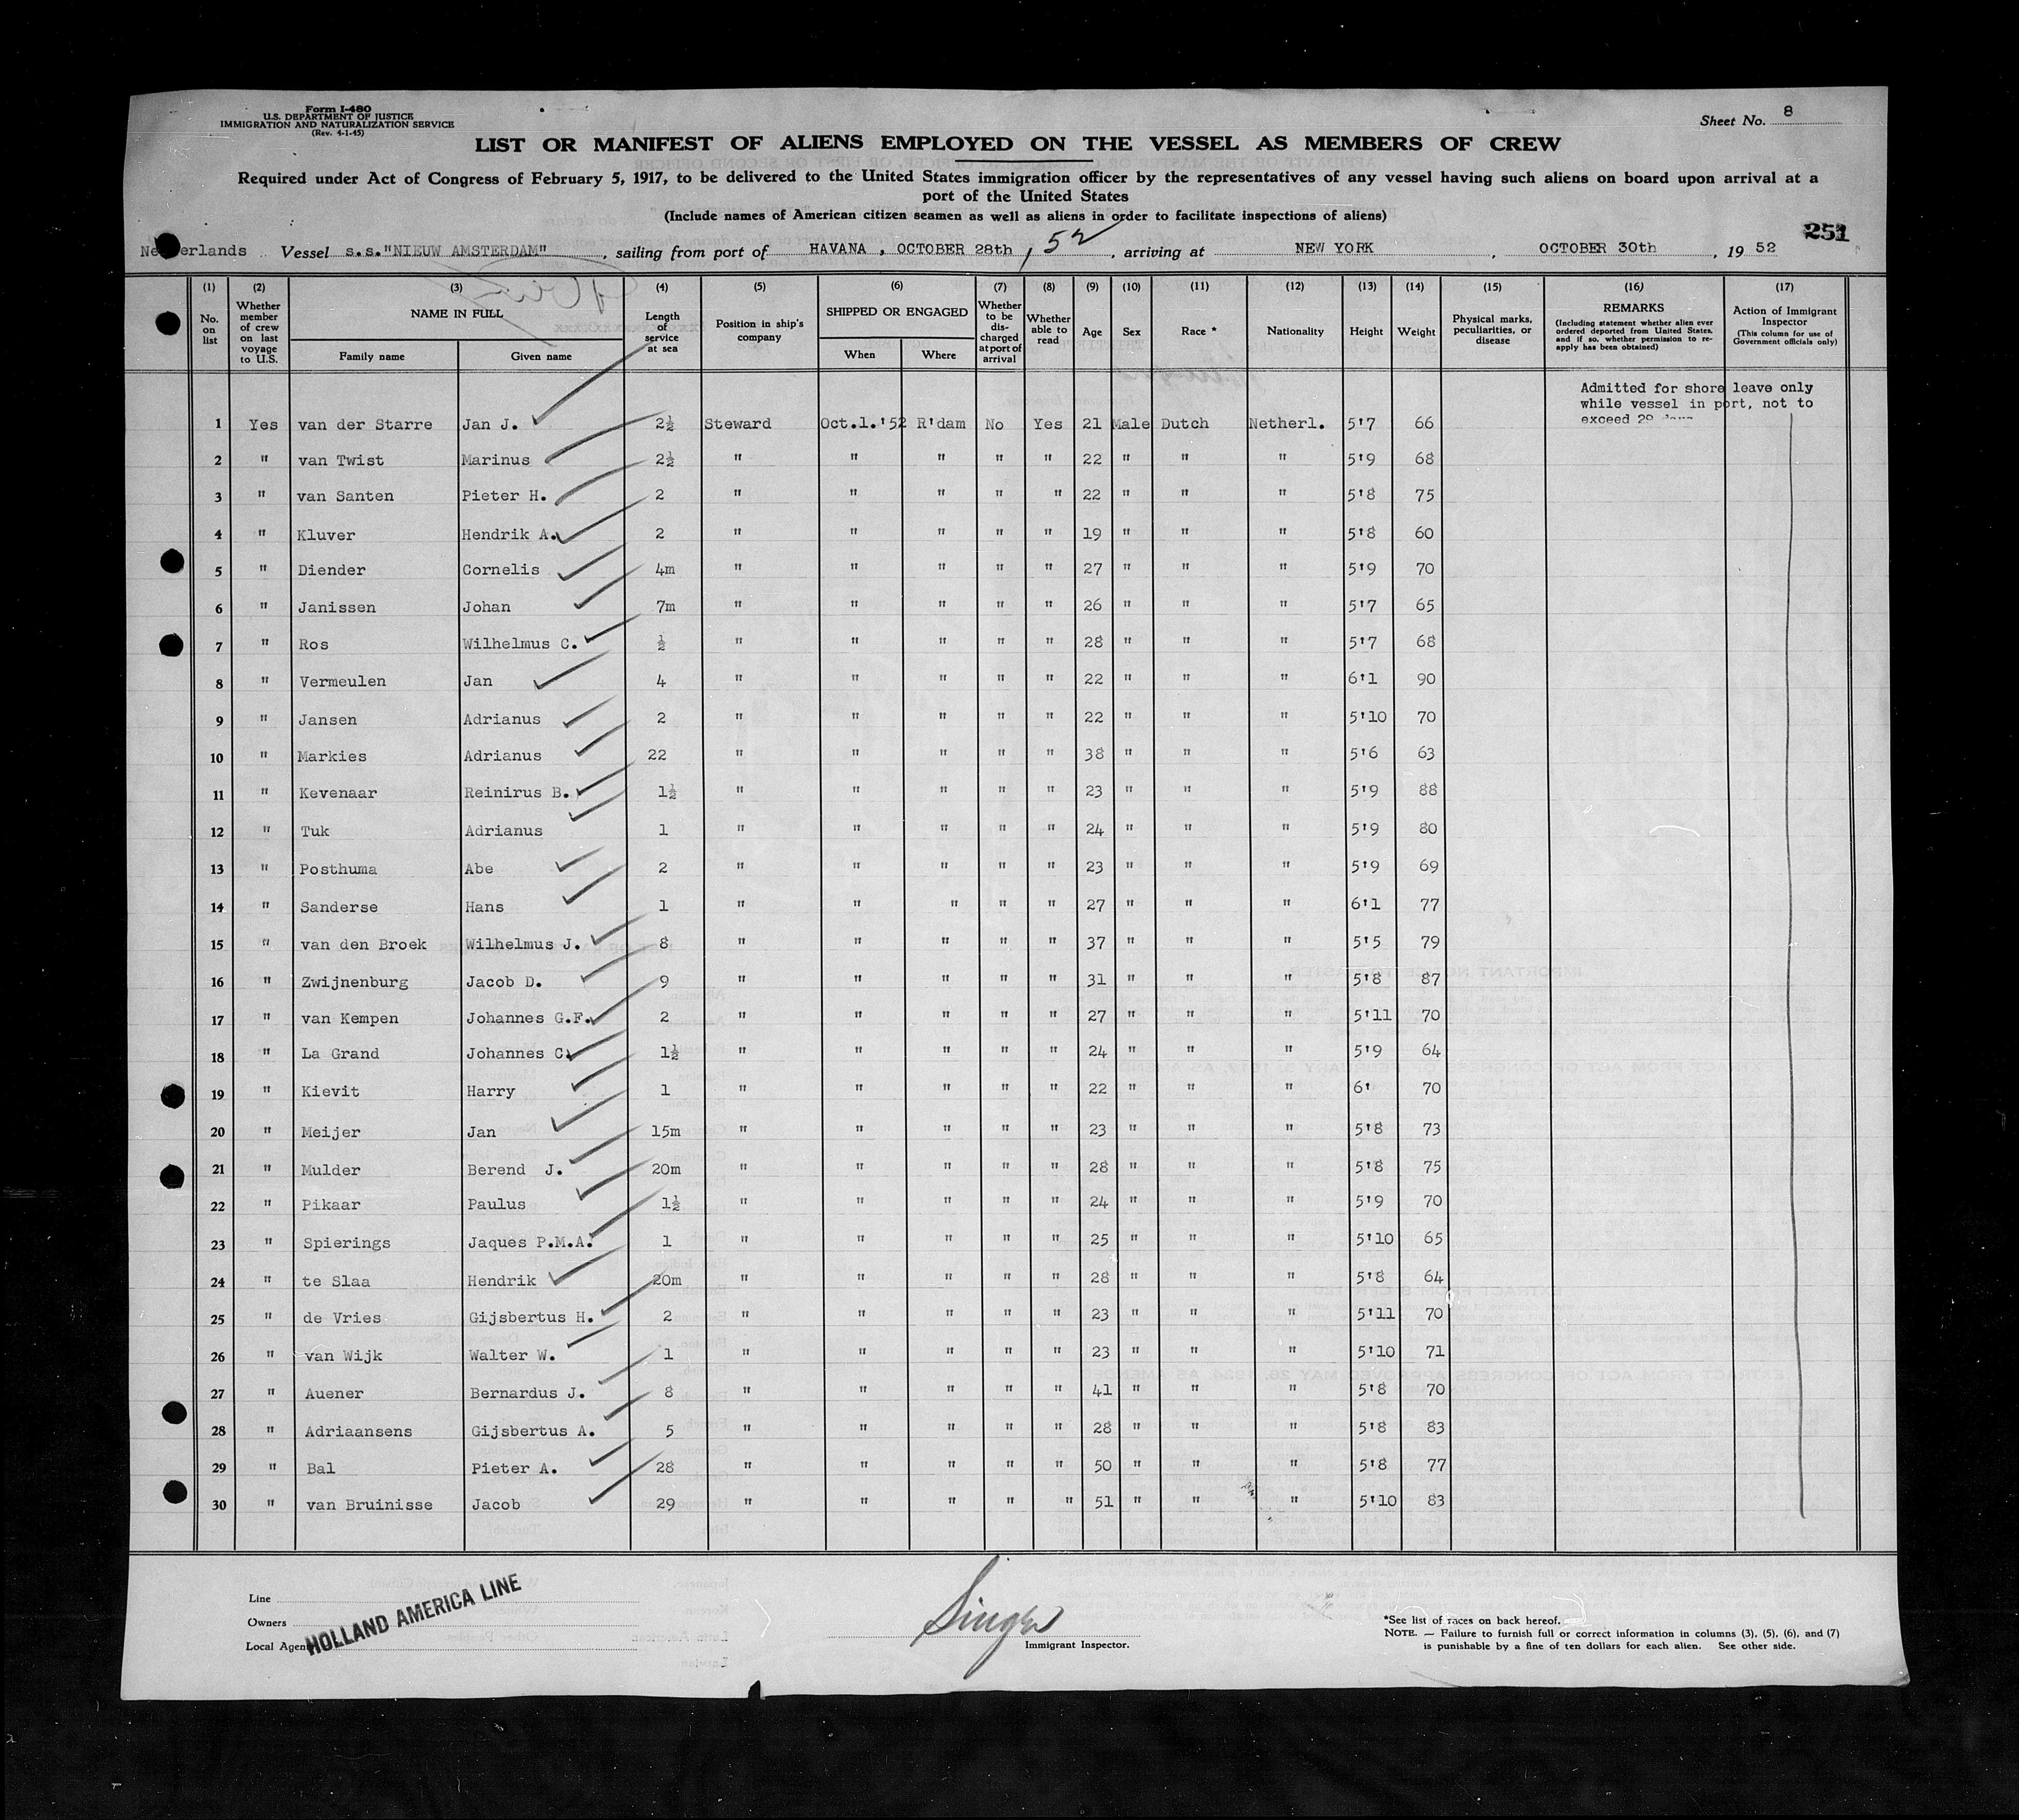 Form I-480
U.S. DEPARTMENT OF JUSTICE
IMMIGRATION AND NATURALIZATION SERVICE
(Rev. 4-1-45)
Sheet No. 8
LIST OR MANIFEST OF ALIENS EMPLOYED ON THE VESSEL AS MEMBERS OF CREW
Required under Act of Congress of February 5, 1917, to be delivered to the United States immigration officer by the representatives of any vessel having such aliens on board upon arrival at a
port of the United States
(Include names of American citizen seamen as well as aliens in order to facilitate inspections of aliens)
251
Netherlands Vessel s.s."NIEUW AMSTERDAM", sailing from port of HAVANA, OCTOBER 28th, 52, arriving at NEW YORK, OCTOBER 30th, 1952
(1) No. on list (2) Whether member of crew on last voyage to U.S. (3) NAME IN FULL Family name Given name (4) Length of service at sea (5) Position in ship's company (6) SHIPPED OR ENGAGED When Where (7) Whether to be discharged at port of arrival (8) Whether able to read (9) Age (10) Sex (11) Race * (12) Nationality (13) Height (14) Weight (15) Physical marks, peculiarities, or disease (16) REMARKS (Including statement whether alien ever ordered deported from United States, and if so, whether permission to re-apply has been obtained) (17) Action of Immigrant Inspector (This column for use of Government officials only)
Admitted for shore leave only
while vessel in port, not to
exceed 29 days
1 Yes van der Starre Jan J. 2½ Steward Oct.1.'52 R'dam No Yes 21 Male Dutch Netherl. 5'7 66
2 " van Twist Marinus 2½ " " " " " 22 " " " 5'9 68
3 " van Santen Pieter H. 2 " " " " " 22 " " " 5'8 75
4 " Kluver Hendrik A. 2 " " " " " 19 " " " 5'8 60
5 " Diender Cornelis 4m " " " " " 27 " " " 5'9 70
6 " Janissen Johan 7m " " " " " 26 " " " 5'7 65
7 " Ros Wilhelmus C. ½ " " " " " 28 " " " 5'7 68
8 " Vermeulen Jan 4 " " " " " 22 " " " 6'1 90
9 " Jansen Adrianus 2 " " " " " 22 " " " 5'10 70
10 " Markies Adrianus 22 " " " " " 38 " " " 5'6 63
11 " Kevenaar Reinirus B. 1½ " " " " " 23 " " " 5'9 88
12 " Tuk Adrianus 1 " " " " " 24 " " " 5'9 80
13 " Posthuma Abe 2 " " " " " 23 " " " 5'9 69
14 " Sanderse Hans 1 " " " " " 27 " " " 6'1 77
15 " van den Broek Wilhelmus J. 8 " " " " " 37 " " " 5'5 79
16 " Zwijnenburg Jacob D. 9 " " " " " 31 " " " 5'8 87
17 " van Kempen Johannes G.F. 2 " " " " " 27 " " " 5'11 70
18 " La Grand Johannes C. 1½ " " " " " 24 " " " 5'9 64
19 " Kievit Harry 1 " " " " " 22 " " " 6' 70
20 " Meijer Jan 15m " " " " " 23 " " " 5'8 73
21 " Mulder Berend J. 20m " " " " " 28 " " " 5'8 75
22 " Pikaar Paulus 1½ " " " " " 24 " " " 5'9 70
23 " Spierings Jaques P.M.A. 1 " " " " " 25 " " " 5'10 65
24 " te Slaa Hendrik 20m " " " " " 28 " " " 5'8 64
25 " de Vries Gijsbertus H. 2 " " " " " 23 " " " 5'11 70
26 " van Wijk Walter W. 1 " " " " " 23 " " " 5'10 71
27 " Auener Bernardus J. 8 " " " " " 41 " " " 5'8 70
28 " Adriaansens Gijsbertus A. 5 " " " " " 28 " " " 5'8 83
29 " Bal Pieter A. 28 " " " " " 50 " " " 5'8 77
30 " van Bruinisse Jacob 29 " " " " " 51 " " " 5'10 83
Line
Owners
Local Agents
HOLLAND AMERICA LINE
Singer
Immigrant Inspector.
*See list of races on back hereof.
NOTE. — Failure to furnish full or correct information in columns (3), (5), (6), and (7)
is punishable by a fine of ten dollars for each alien. See other side.